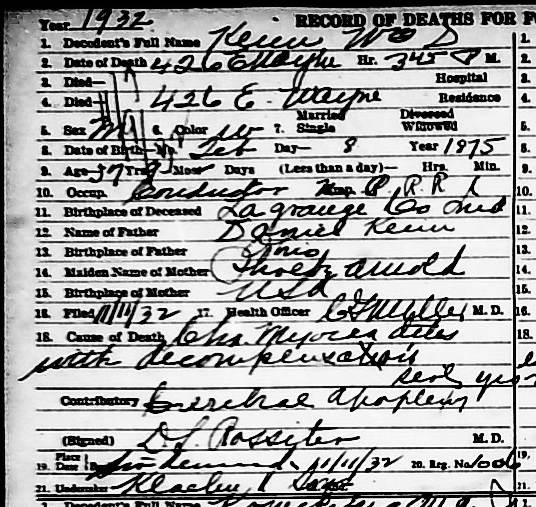 Year 1932 RECORD OF DEATHS FOR F
1. Decedent's Full Name Kern Wm D
2. Date of Death 426 E Wayne Hr. 345 P M.
3. Died— Hospital
4. Died— 426 E. Wayne Residence
Married Divorced
5. Sex M 6. Color w 7. Single Widowed
8. Date of Birth—Mo. Feb Day— 8 Year 1875
9. Age 57 Yrs 9 Mos Days (Less than a day)— Hrs. Min.
10. Occup. Conductor P. R R
11. Birthplace of Deceased Lagrange Co Ind
12. Name of Father Daniel Kern
13. Birthplace of Father Ohio
14. Maiden Name of Mother Phoebe Arnold
15. Birthplace of Mother USA
16. Filed 11/11/32 17. Health Officer M. D.
18. Cause of Death Chr. Myocarditis
with decompensation
sev yrs
Contributory Cerebral apoplexy
(Signed) D L Rossiter M. D.
19. Place Date 11/11/32 20. Reg. No 1006
21. Undertaker Klaehn & Sons
1. Decedent's Full Name
1.
2.
3.
4.
5.
6.
8.
9.
10.
11.
12.
13.
14.
15.
16.
18.
19.
21.
1.